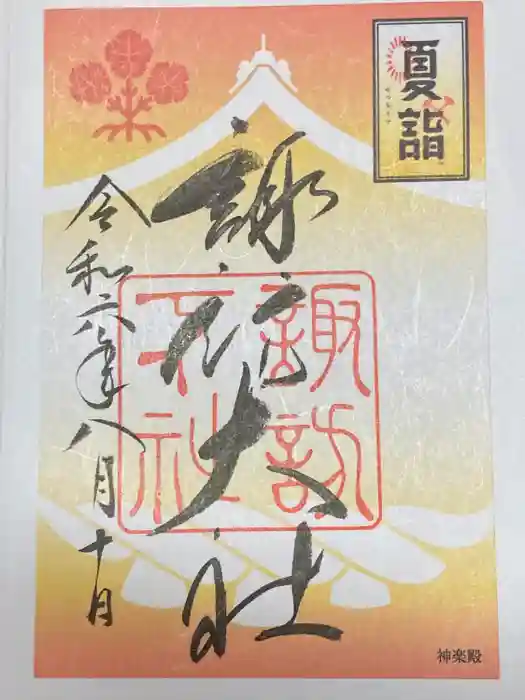 夏詣
諏訪大社
諏訪
下社
令和六年八月十日
神楽殿